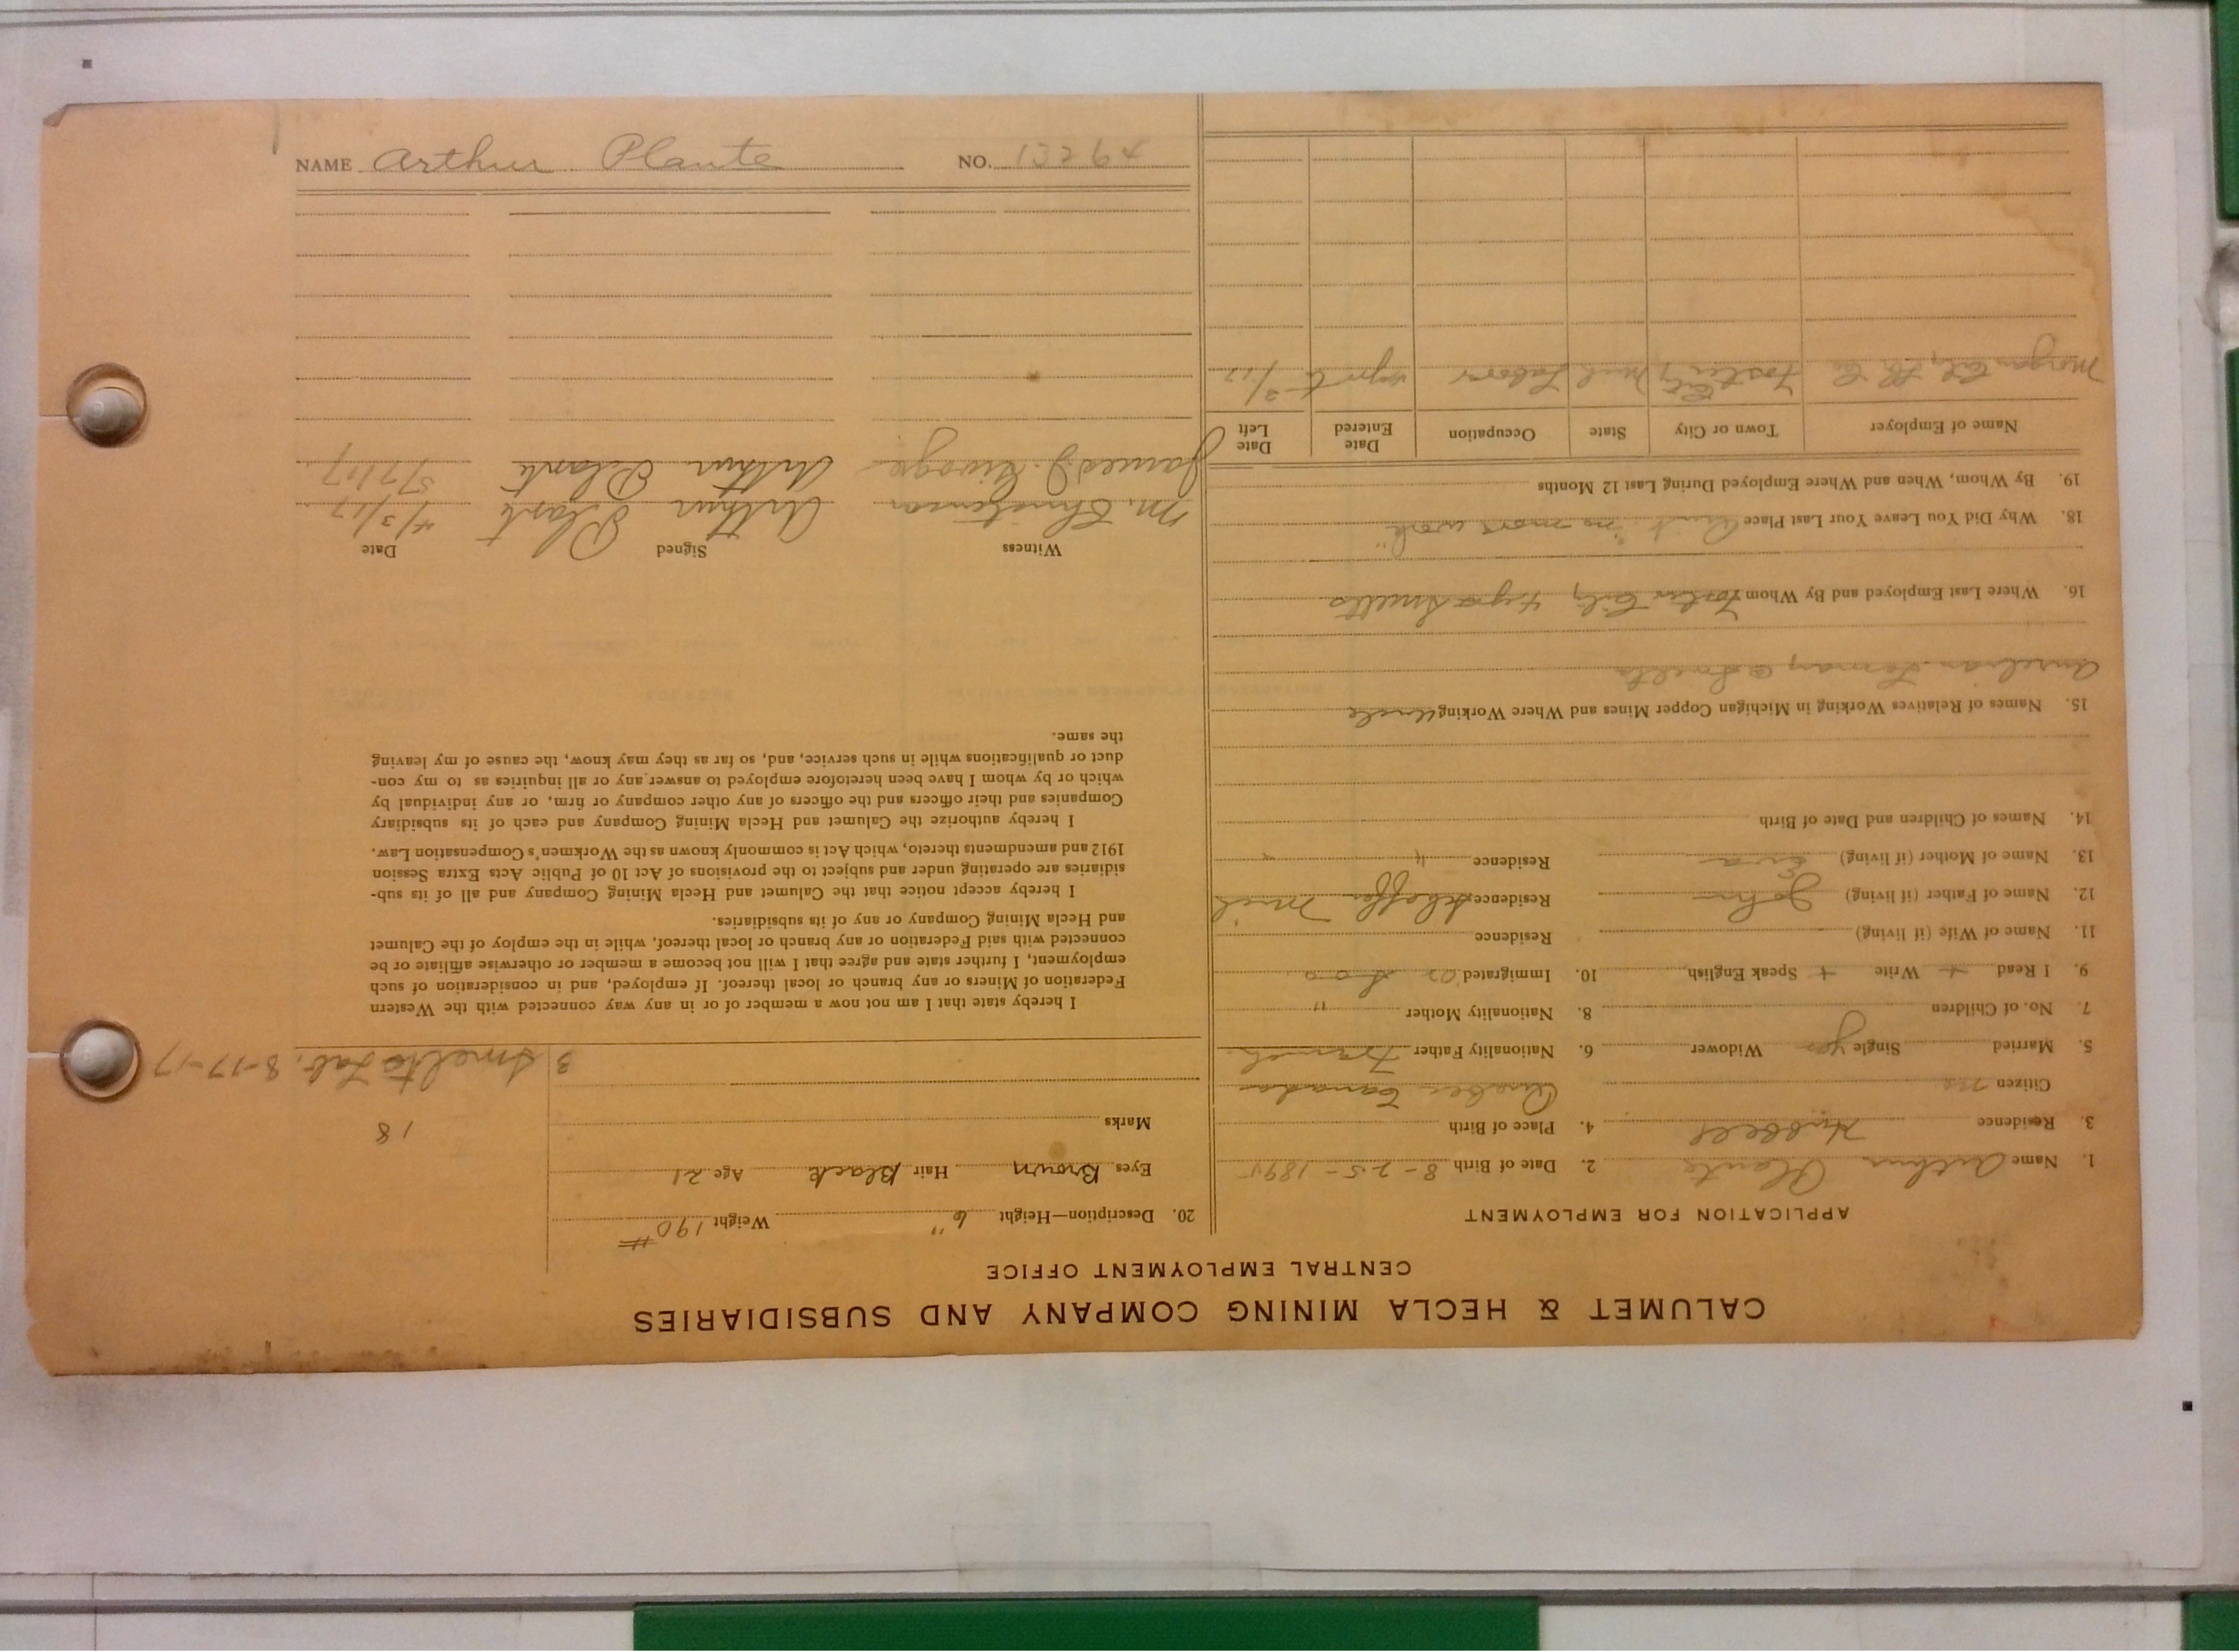 CALUMET & HECLA MINING COMPANY AND SUBSIDIARIES
CENTRAL EMPLOYMENT OFFICE
APPLICATION FOR EMPLOYMENT
1. Name Arthur Plante 2. Date of Birth 8-25-1895
3. Residence Hubbell 4. Place of Birth
Citizen no Quebec Canada
5. Married Single yes Widower 6. Nationality Father French
7. No. of Children 8. Nationality Mother "
9. I Read + Write + Speak English 10. Immigrated
11. Name of Wife (if living) Residence
12. Name of Father (if living) John Residence Mich
13. Name of Mother (if living) Eva Residence " "
14. Names of Children and Date of Birth
15. Names of Relatives Working in Michigan Copper Mines and Where Working Uncle
16. Where Last Employed and By Whom Foster City
18. Why Did You Leave Your Last Place "no more work"
19. By Whom, When and Where Employed During Last 12 Months
Name of Employer Town or City State Occupation Date Entered Date Left
Morgan Foster City Mich Labor 3/17
20. Description—Height 6" Weight 190#
Eyes Brown Hair Black Age 21
Marks
18
3 Smelts Lab. 8-17-17
I hereby state that I am not now a member of or in any way connected with the Western
Federation of Miners or any branch or local thereof. If employed, and in consideration of such
employment, I further state and agree that I will not become a member or otherwise affiliate or be
connected with said Federation or any branch or local thereof, while in the employ of the Calumet
and Hecla Mining Company or any of its subsidiaries.
I hereby accept notice that the Calumet and Hecla Mining Company and all of its sub-
sidiaries are operating under and subject to the provisions of Act 10 of Public Acts Extra Session
1912 and amendments thereto, which Act is commonly known as the Workmen's Compensation Law.
I hereby authorize the Calumet and Hecla Mining Company and each of its subsidiary
Companies and their officers and the officers of any other company or firm, or any individual by
which or by whom I have been heretofore employed to answer any or all inquiries as to my con-
duct or qualifications while in such service, and, so far as they may know, the cause of my leaving
the same.
Witness Signed Date
M. Arthur Plante 4/3/17
James J. Arthur Plante 5/7/17
NAME Arthur Plante NO. 13264